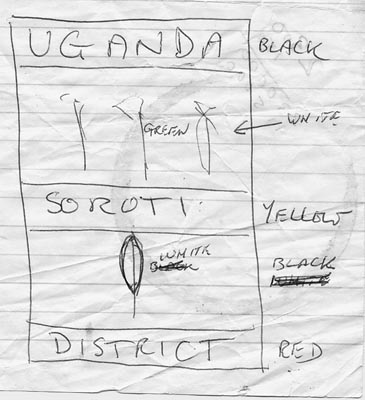 UGANDA BLACK
GREEN WHITE
SOROTI YELLOW
WHITE BLACK
BLACK WHITE
DISTRICT RED